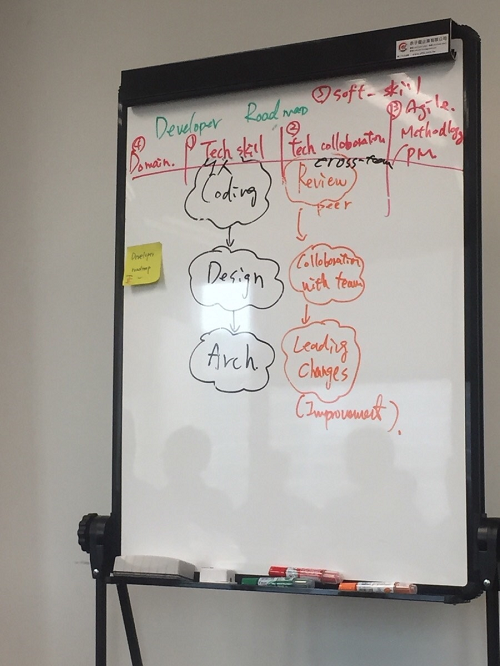 Developer Roadmap
⑤ soft-skill
④ Domain.
① Tech skill
② Tech collaboration
③ Agile.
Methodology
/ PM
cross-team
Coding
Design
Arch.
Review
peer
Collaboration
with team
Leading
Changes
(Improvement).
Developer
roadmap